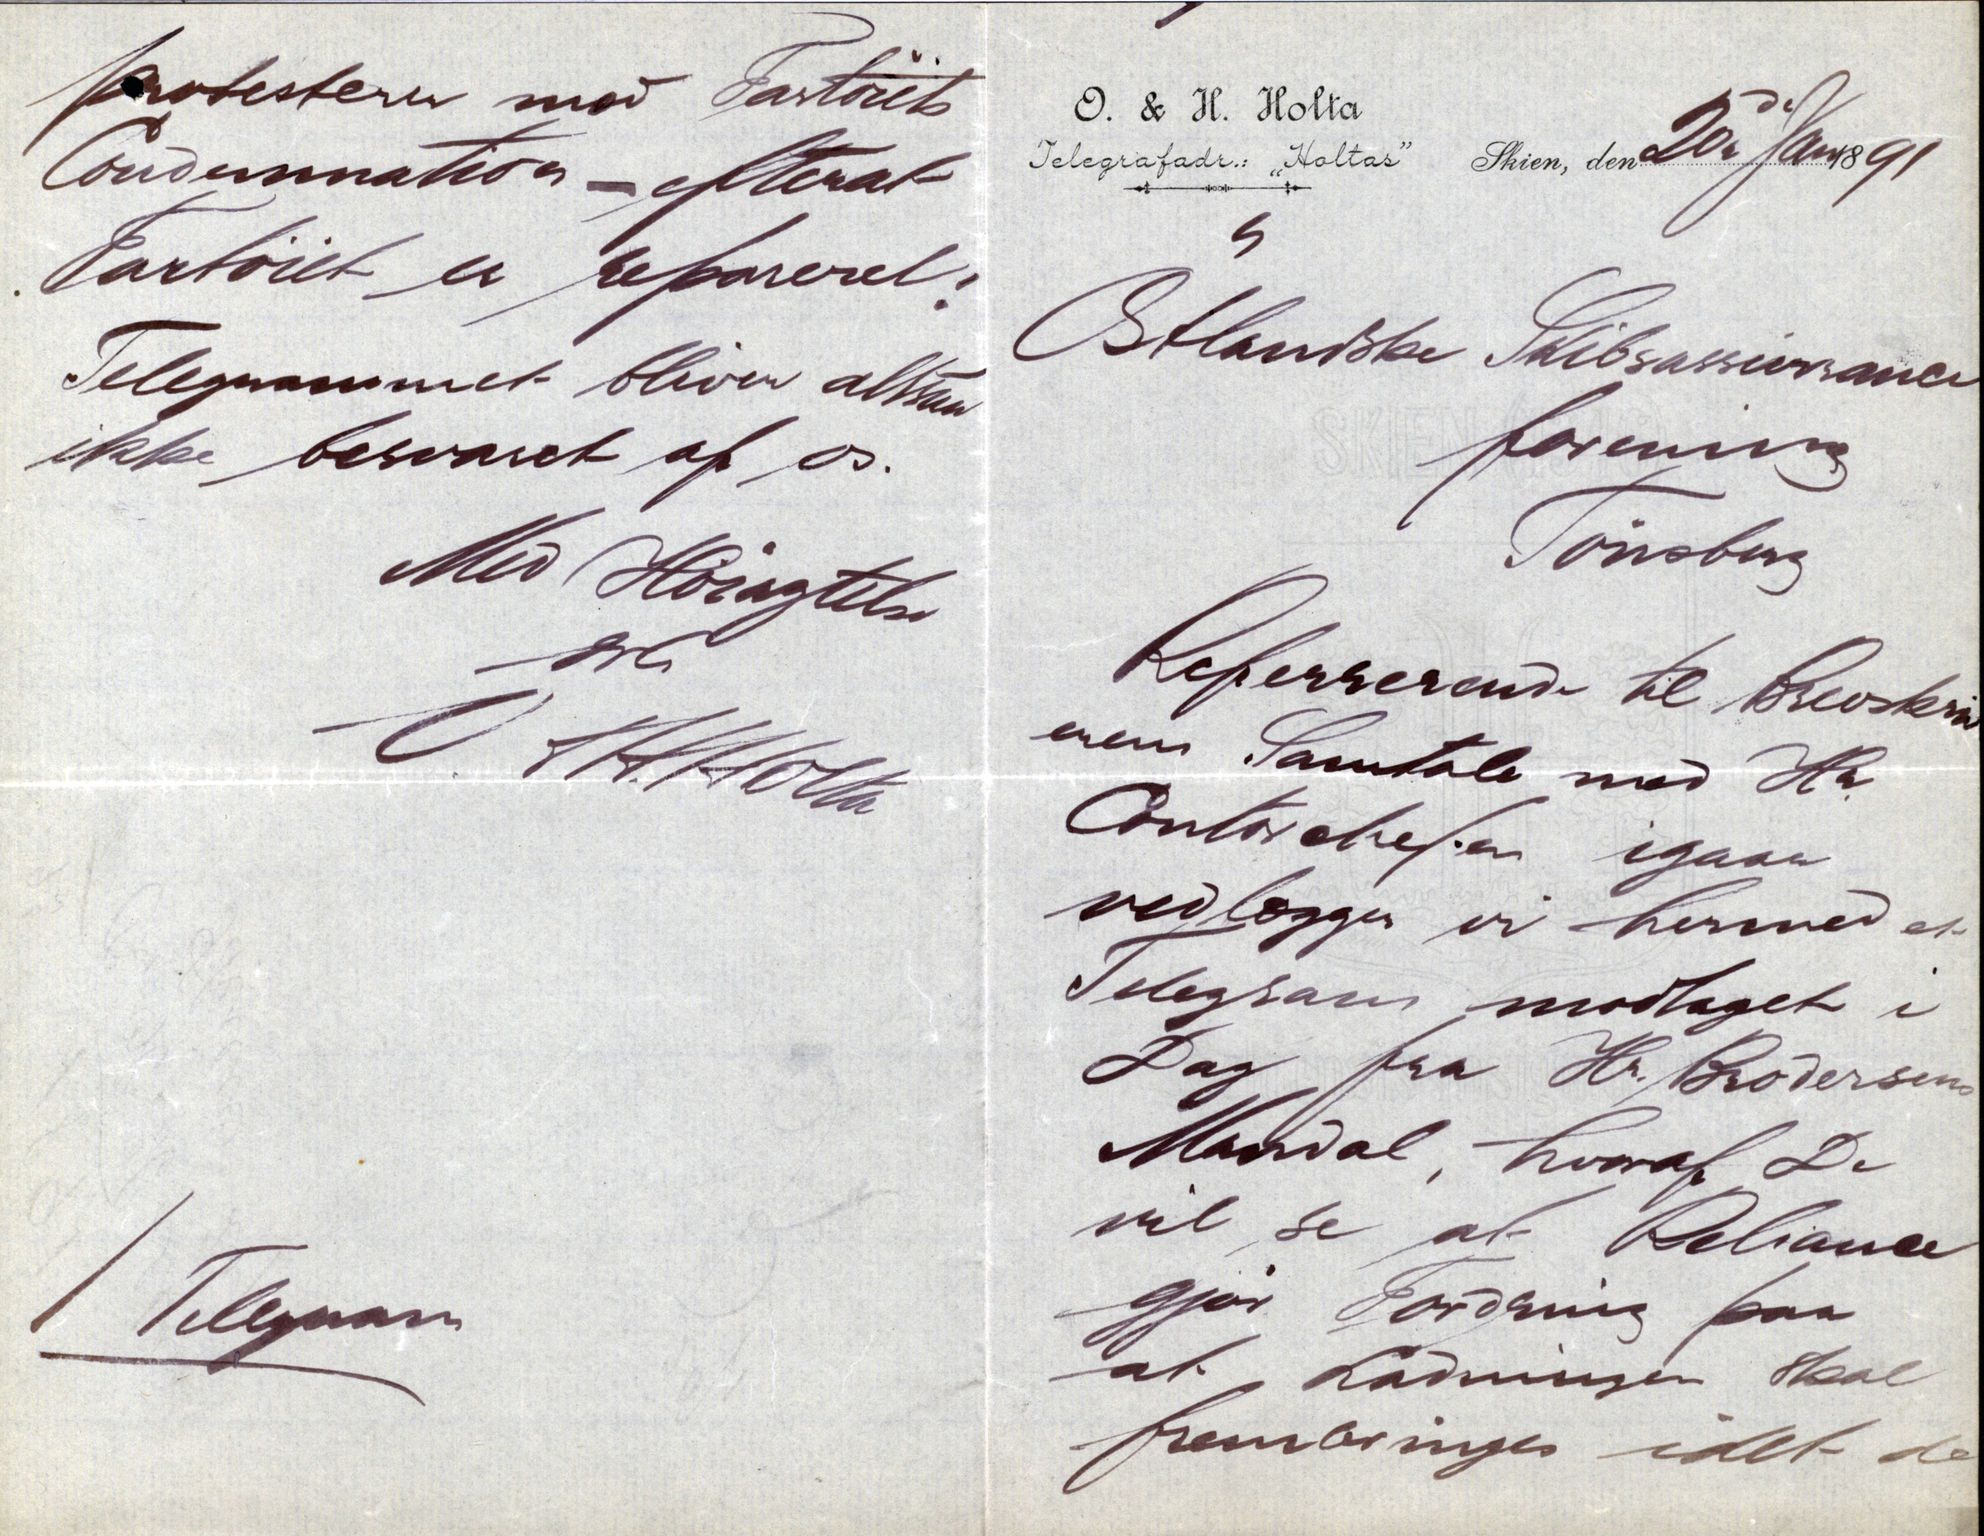 O. & H. Holta
Telegrafadr.: "Holtas"
Skien, den 20de Jan 1891
Östlandske Skibsassurance
forening
Tönsberg
Refererende til Brevskriv
erens Samtale med Hr.
Contorchefen igaar
vedlægger vi hermed et
Telegram modtaget i
Dag fra Hr. Brodersens
Mandal, hvoraf De
vil se at Reliance
gjør Fordring paa
at Ladningen skal
frembringes idet de
protesterer mod Fartöiets
Condemnation – efterat
Fartöiet er repareret!
Telegrammet bliver altsaa
ikke besvaret af os.
Med Höiagtelse
O. & H. Holta
1 Telegram